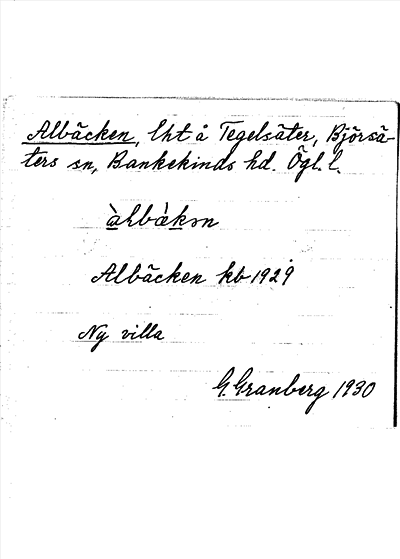 Albäcken, lht å Tegelsäter, Björsä-
ters sn, Bankekinds hd. Ögl. l.
àlbàkən
Albäcken kb 1929
Ny villa
G. Granberg 1930